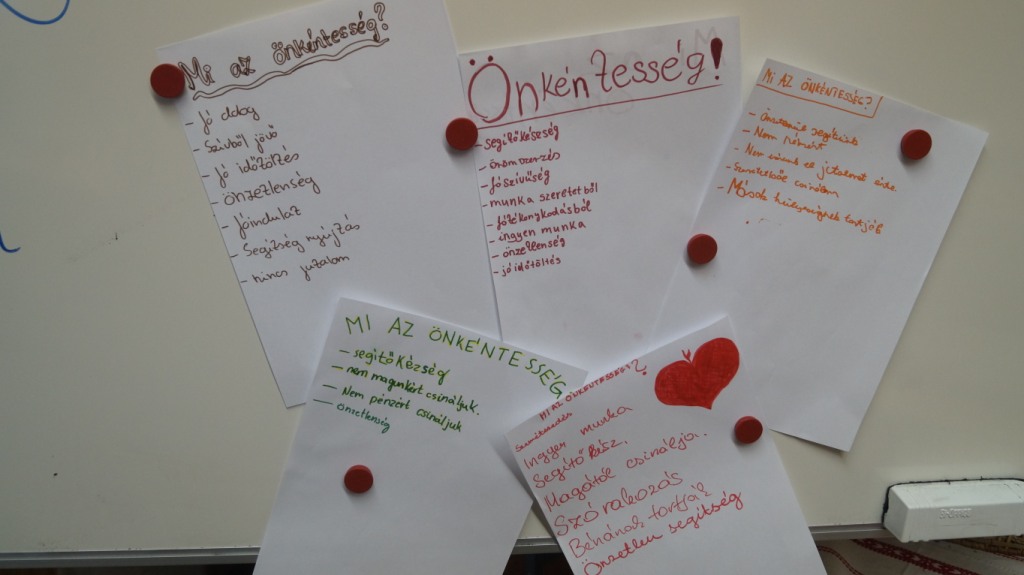 Mi az önkéntesség?
- Jó dolog
- Szívből jövő
- Jó időtöltés
- Önzetlenség
- Jóindulat
- Segítség nyújtás
- nincs jutalom
Önkéntesség!
- segítőkészség
- örömszerzés
- jószívűség
- munka szeretetből
- jótékonykodásból
- ingyen munka
- önzetlenség
- jó időtöltés
MI AZ ÖNKÉNTESSÉG?
- önszántából segítünk
- Nem pénzért
- Nem várunk el jutalmat érte
- Szeretetből csinálom
- Mások hülyeségnek tartják
MI AZ ÖNKÉNTESSÉG
- segítőkézség
- nem magunkért csináljuk.
- Nem pénzért csináljuk
- önzetlenség
MI AZ ÖNKÉNTESSÉG?
Ingyen munka
Segítőkész.
Magától csinálja.
Szórakozás
Bénának tartják
Önzetlen segítség